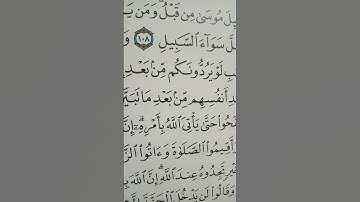 ـِٔلَ مُوسَىٰ مِن قَبْلُ ۗ وَمَن يَـ
ـلَّ سَوَآءَ ٱلسَّبِيلِ ١٠٨ وَ
ـبِ لَوْ يَرُدُّونَكُم مِّنۢ بَعْدِ
ـدِ أَنفُسِهِم مِّنۢ بَعْدِ مَا تَبَيَّـ
ـفَحُوا۟ حَتَّىٰ يَأْتِىَ ٱللَّهُ بِأَمْرِهِۦٓ ۗ إِنَّ
أَقِيمُوا۟ ٱلصَّلَوٰةَ وَءَاتُوا۟ ٱلزَّ
خَيْرٍ تَجِدُوهُ عِندَ ٱللَّهِ ۗ إِنَّ ٱللَّهَ بِـ
وَقَالُوا۟ لَن يَدْخُلَ ٱلْجَنَّةَ